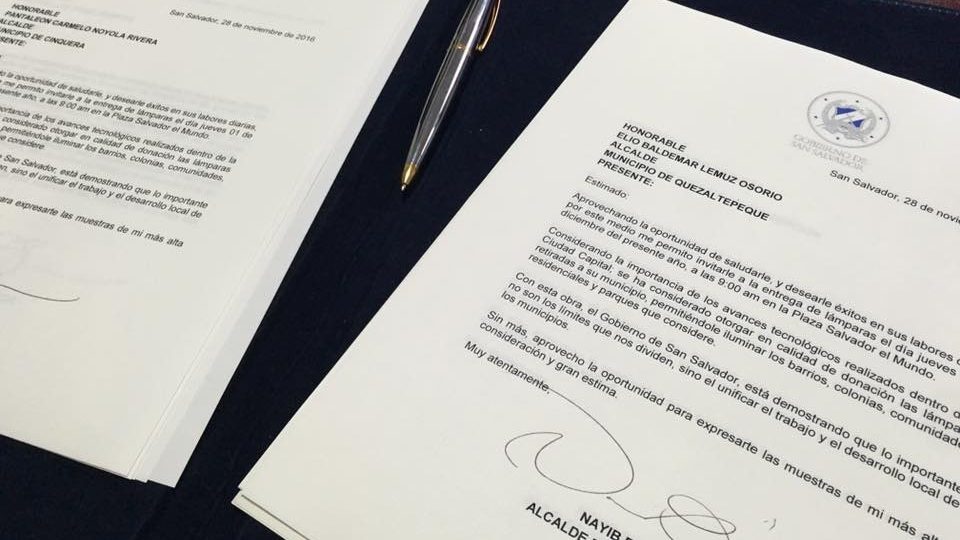 San Salvador, 28 de noviembre de 2016
HONORABLE
PANTALEON CARMELO NOYOLA RIVERA
ALCALDE
MUNICIPIO DE CINQUERA
PRESENTE:
la oportunidad de saludarle, y desearle éxitos en sus labores diarias,
me permito invitarle a la entrega de lámparas el día jueves 01 de
presente año, a las 9:00 am en la Plaza Salvador el Mundo.
importancia de los avances tecnológicos realizados dentro de la
considerado otorgar en calidad de donación las lámparas
permitiéndole iluminar los barrios, colonias, comunidades,
considere.
San Salvador, está demostrando que lo importante
sino el unificar el trabajo y el desarrollo local de
para expresarte las muestras de mi más alta
GOBIERNO DE
SAN SALVADOR
San Salvador, 28 de
HONORABLE
ELIO BALDEMAR LEMUZ OSORIO
ALCALDE
MUNICIPIO DE QUEZALTEPEQUE
PRESENTE:
Estimado:
Aprovechando la oportunidad de saludarle, y desearle éxitos en sus labores
por este medio me permito invitarle a la entrega de lámparas el día jueves
diciembre del presente año, a las 9:00 am en la Plaza Salvador el Mundo.
Considerando la importancia de los avances tecnológicos realizados dentro
Ciudad Capital; se ha considerado otorgar en calidad de donación las
retiradas a su municipio, permitiéndole iluminar los barrios, colonias,
residenciales y parques que considere.
Con esta obra, el Gobierno de San Salvador, está demostrando que lo importante
no son los límites que nos dividen, sino el unificar el trabajo y el desarrollo local de
los municipios.
Sin más, aprovecho la oportunidad para expresarte las muestras de mi más alta
consideración y gran estima.
Muy atentamente.
NAYIB
ALCALDE